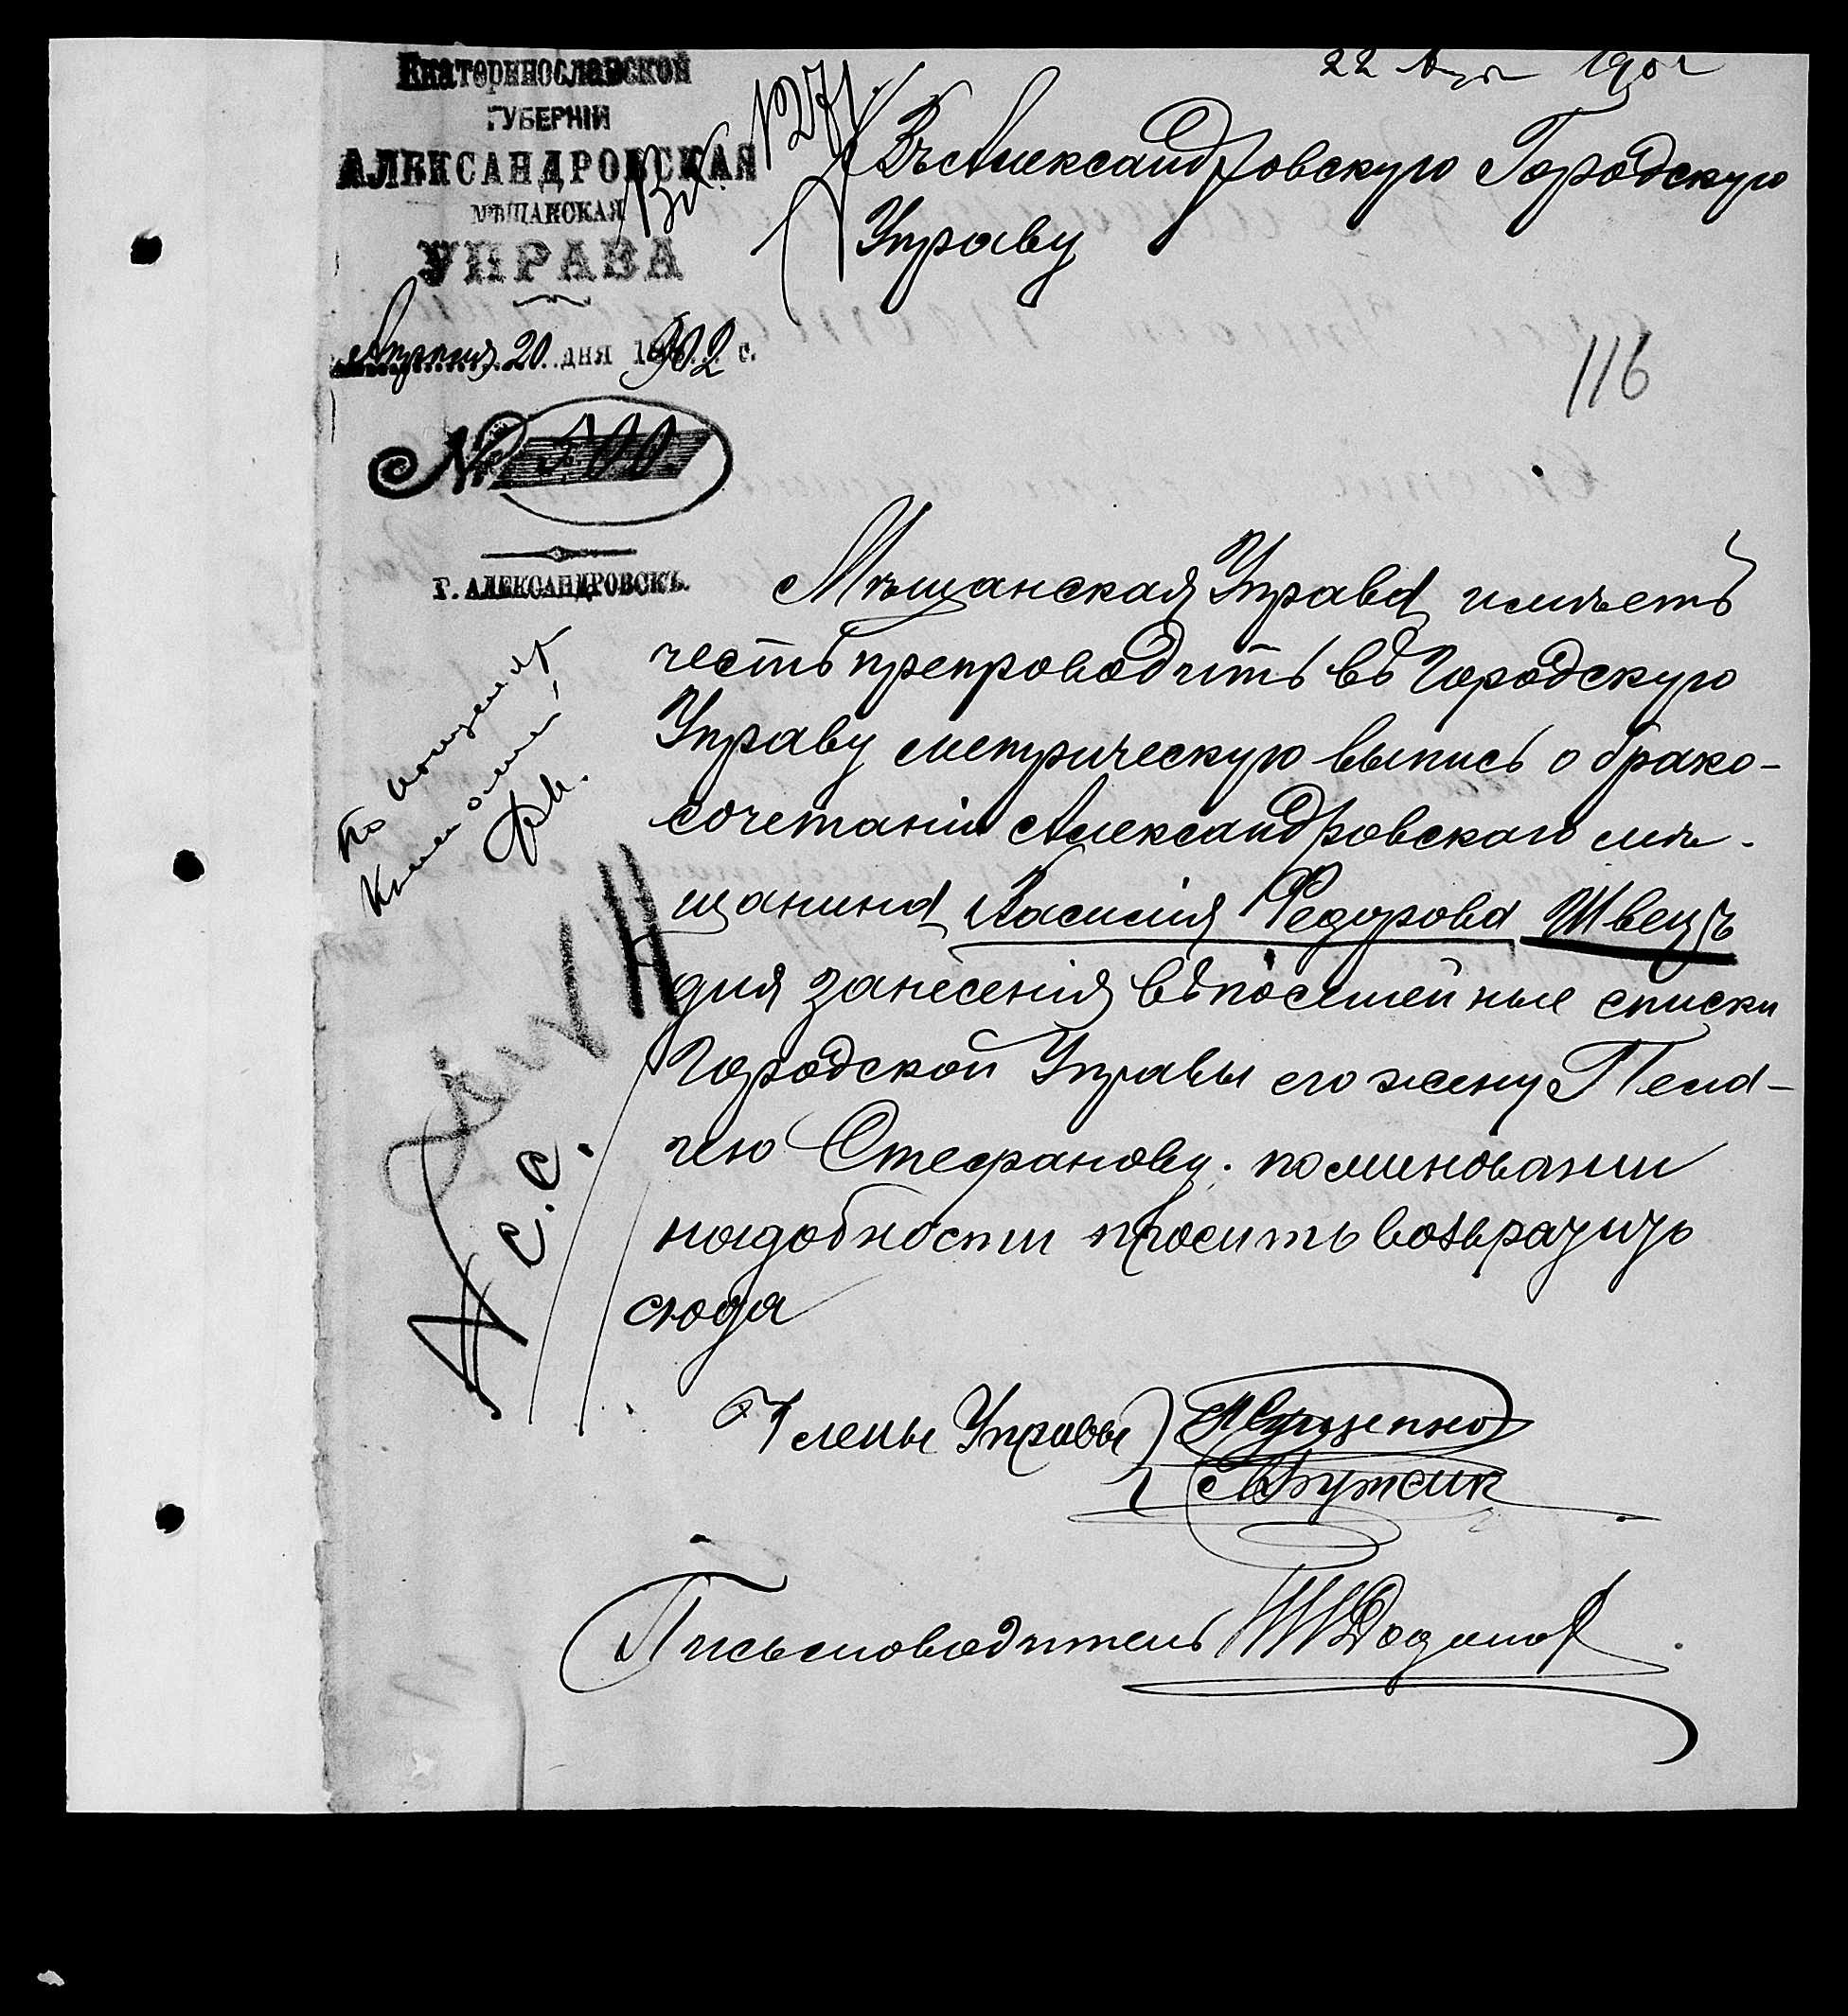 Екатеринославской
ГУБЕРНІИ
АЛЕКСАНДРОВСКАЯ
МѢЩАНСКАЯ
УПРАВА
20 дня 1902 г.
№ 500
Г. АЛЕКСАНДРОВСКЪ.
22 1902
Въ Александровскую Городскую
Управу
116
Мѣщанская Управа имѣетъ
честь препроводить въ Городскую
Управу метрическую выпись о брако-
сочетаніи Александровскаго мѣ-
щанина Василія Федорова Швецъ
для занесенія въ посемейные списки
Городской Управы его жену Пела-
гею Стефанову. по миновании
надобности просить возвратить
сюда
Члены Управы
Письмоводитель